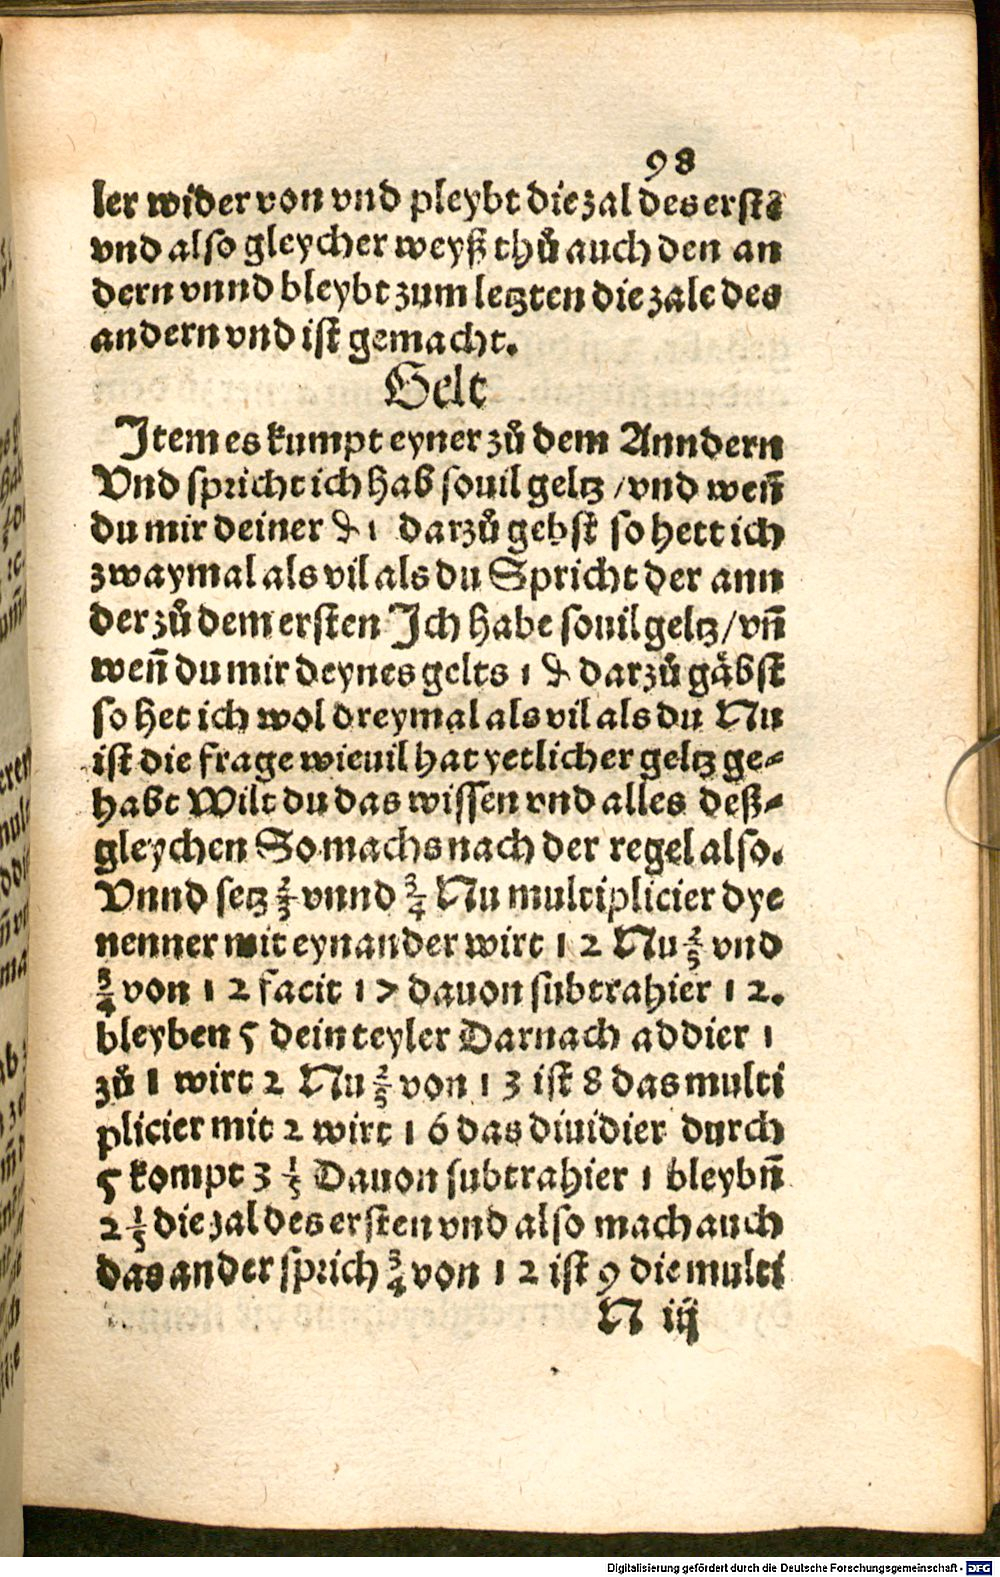 98
ler wider von vnd pleybt die zal des erstē
vnd also gleycher weyß thů auch den an
dern vnnd bleybt zum letzten die zale des
andern vnd ist gemacht.
Gelt
Item es kumpt eyner zů dem Anndern
Vnd spricht ich hab souil geltz / vnd weñ
du mir deiner ₰ 1 darzů gebst so hett ich
zwaymal als vil als du Spricht der ann
der zů dem ersten Ich habe souil geltz / vñ
weñ du mir deynes gelts 1 ₰ darzů gåbst
so het ich wol dreymal als vil als du Nu
ist die frage wieuil hat yetlicher geltz ge⸗
habt Wilt du das wissen vnd alles deß⸗
gleychen So machs nach der regel also.
Vnnd setz 2/3 vnnd 3/4 Nu multiplicier dye
nenner mit eynander wirt 12 Nu 2/5 vnd
3/4 von 12 facit 17 dauon subtrahier 12.
bleyben 5 dein teyler Darnach addier 1
zů 1 wirt 2 Nu 2/5 von 13 ist 8 das multi
plicier mit 2 wirt 16 das diuidier durch
5 kompt 3 1/5 Dauon subtrahier 1 bleybñ
2 1/5 die zal des ersten vnd also mach auch
das ander sprich 3/4 von 12 ist 9 die multi
N iij
Digitalisierung gefördert durch die Deutsche Forschungsgemeinschaft - DFG